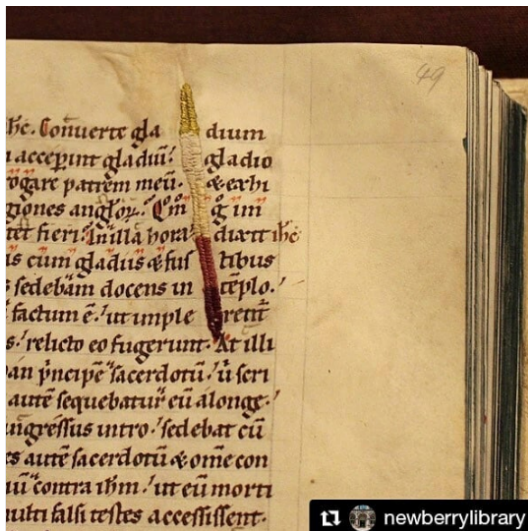 49
ihc. Conuerte gla dium
acceꝑint gladiū. gladio
rogare patrem meū. & exhi
giones angłoꝝ. Qm̊ g̊ im
tet fieri. In illa hora dixit ihc
is cum gladius & fus tibus
sedebam docens in tēplo.
factum ē. ut imple rent̄
s. relicto eo fugerunt. At illi
pncipē sacerdotū. u scri
autē sequebatur eū alonge.
ingressus intro. sedebat cū
es autē sacerdotū & omē con
iū contra ihm. ut eū morti
multi falsi testes accessissent.
newberrylibrary